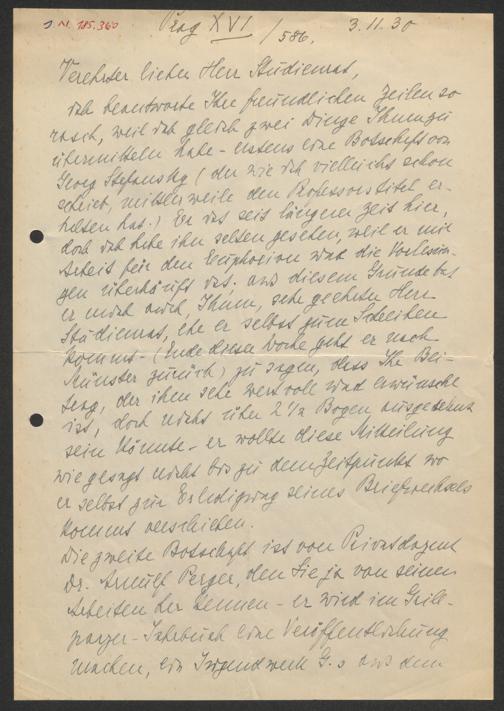 J.N. 185.360
Prag XVI / 586. 3.11.30
Verehrter lieber Herr Studienrat,
ich beantworte Ihre freundlichen Zeilen so
rasch, weil ich gleich zwei Dinge Ihnen zu
übermitteln habe - erstens eine Botschaft von
Georg Stefansky (der wie ich vielleicht schon
schrieb, mittlerweile den Professortitel er-
halten hat.) Er ist seit längerer Zeit hier,
doch ich habe ihn selten gesehen, weil er mit
Arbeit für den Euphorion und die Vorlesun-
gen überhäuft ist. aus diesem Grunde bat
er mich auch, Ihnen, sehr geehrter Herr
Studienrat, ehe er selbst zum Schreiben
kommt - (Ende dieser Woche geht er nach
Münster zurück) zu sagen, dass Ihr Bei-
trag, der ihm sehr wertvoll und erwünscht
ist, doch nicht über 2 1/2 Bogen ausgedehnt
sein könnte - er wollte diese Mitteilung
wie gesagt nicht bis zu dem Zeitpunkt wo
er selbst zur Erledigung seines Briefwechsels
kommt verschieben.
Die zweite Botschaft ist von Privatdozent
Dr. Arnulf Perger, den Sie ja von seinen
Arbeiten her kennen - er wird im Grill-
parzer-Jahrbuch eine Veröffentlichung
machen, ein Jugendwerk G.s aus dem